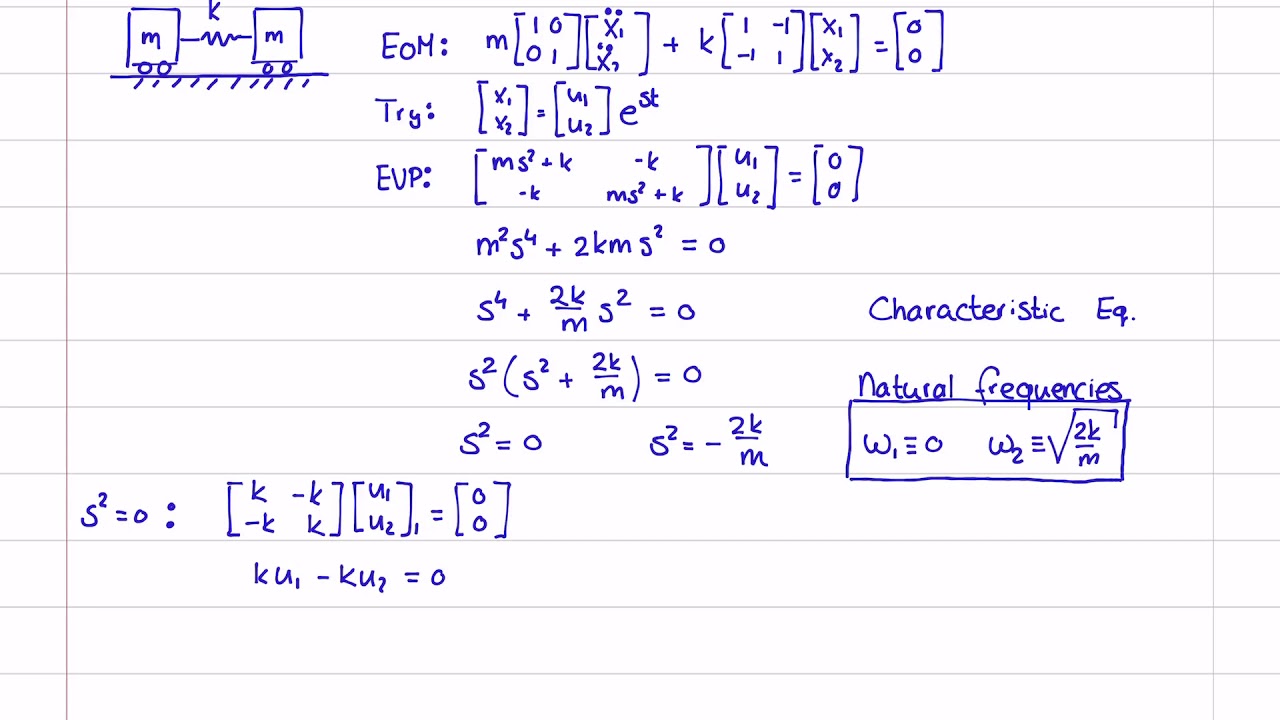 k
m m
EoM: m[1 0; 0 1][ẍ₁; ẍ₂] + k[1 -1; -1 1][x₁; x₂] = [0; 0]
Try: [x₁; x₂] = [u₁; u₂] e^st
EVP: [ms² + k -k; -k ms² + k][u₁; u₂] = [0; 0]
m²s⁴ + 2kms² = 0
s⁴ + 2k/m s² = 0 Characteristic Eq.
s²(s² + 2k/m) = 0
Natural frequencies
s² = 0 s² = -2k/m ω₁ ≡ 0 ω₂ ≡ √(2k/m)
s² = 0 : [k -k; -k k][u₁; u₂]₁ = [0; 0]
ku₁ - ku₂ = 0